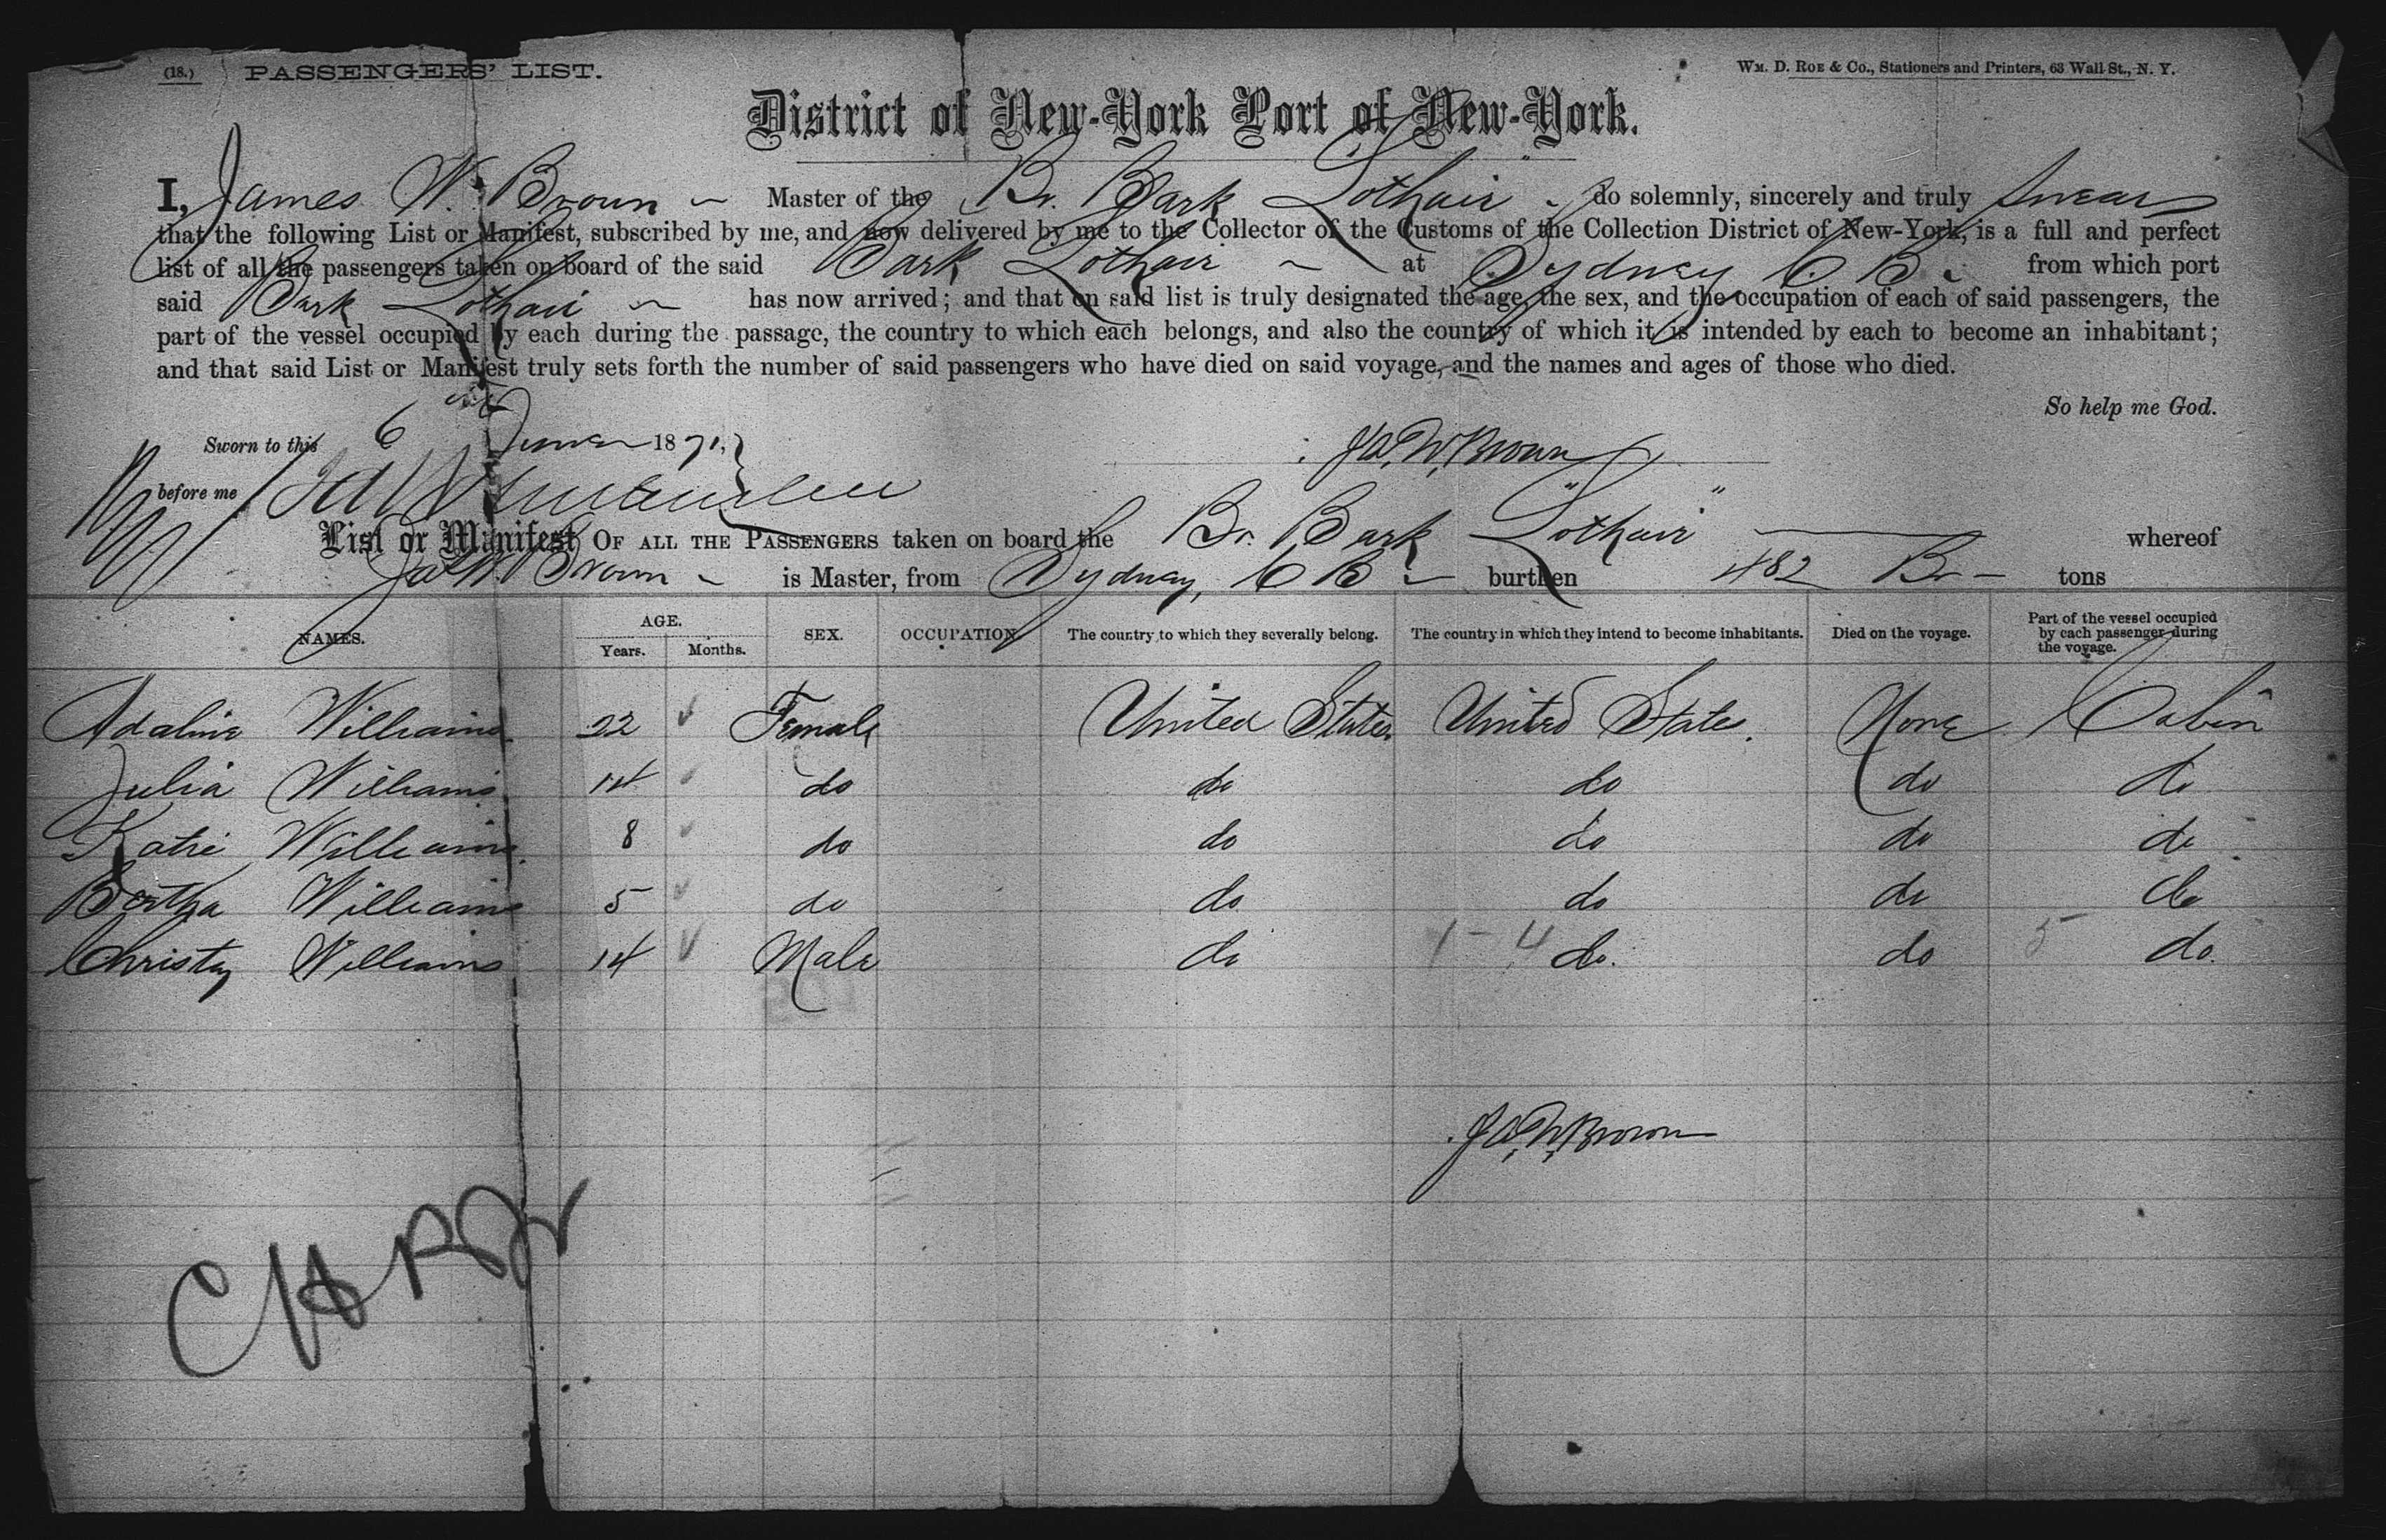 (18.) PASSENGERS' LIST.
Wm. D. Roe & Co., Stationers and Printers, 63 Wall St., N. Y.
District of New-York Port of New-York.
I, James W. Brown Master of the Br. Bark Lothair do solemnly, sincerely and truly swear
that the following List or Manifest, subscribed by me, and now delivered by me to the Collector of the Customs of the Collection District of New-York, is a full and perfect
list of all the passengers taken on board of the said Bark Lothair at Sydney C B from which port
said Bark Lothair has now arrived; and that on said list is truly designated the age, the sex, and the occupation of each of said passengers, the
part of the vessel occupied by each during the passage, the country to which each belongs, and also the country of which it is intended by each to become an inhabitant;
and that said List or Manifest truly sets forth the number of said passengers who have died on said voyage, and the names and ages of those who died.
So help me God.
Sworn to this 6 June 1871, Jas. W. Brown
before me
List or Manifest OF ALL THE PASSENGERS taken on board the Br. Bark "Lothair" whereof
Jas W. Brown is Master, from Sydney, C B burthen 482 Br tons
NAMES. AGE. Years. Months. SEX. OCCUPATION. The country to which they severally belong. The country in which they intend to become inhabitants. Died on the voyage. Part of the vessel occupied by each passenger during the voyage.
Adaline Williams 22 Female United States. United States. None Cabin
Julia Williams 14 do do do do do
Katie Williams 8 do do do do do
Bertha Williams 5 do do do do do
Christy Williams 14 Male do do. do do.
1-4 5
Jas. W. Brown